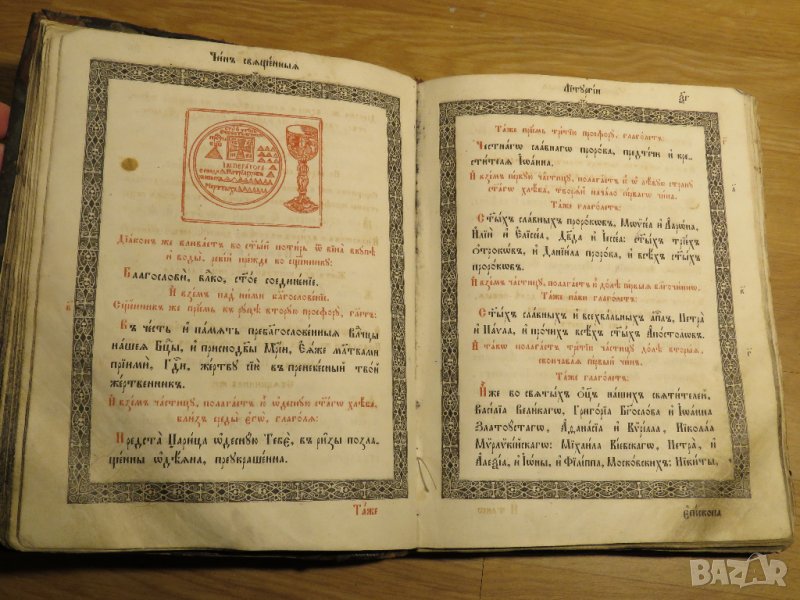 Чи́нъ свѧще́нныѧ
Дїа́конъ же влива́етъ во ст҃ы́й поти́ръ ѿ вїна̀ вкꙋ́пѣ
и҆ воды̀, ре́кїй пре́жде ко сщ҃е́нникꙋ:
Благословѝ, влⷣко, ст҃о́е соедине́нїе.
И҆ взе́мъ над ни́ми благослове́нїе.
Сщ҃е́нникъ же прїи́мъ въ рꙋцѣ̀ вторꙋ́ю просфорꙋ̀, гл҃етъ:
Въ че́сть и҆ па́мѧть преблагослове́нныѧ влⷣчцы
на́шеѧ бц҃ы, и҆ приснодв҃ы мр҃і́и, є҆ѧ́же мл҃твами
прїимѝ, гдⷭ҇и, же́ртвꙋ сїю̀ въ пренебе́сный тво́й
же́ртвенникъ.
И҆ взе́мъ части́цꙋ, полага́етъ ю҆̀ ѡ҆деснꙋ́ю ст҃а́гѡ хлѣ́ба,
бли́зъ среды̀ є҆гѡ̀, глаго́лѧ:
Предста̀ Цари́ца ѡ҆деснꙋ́ю Тебє̀, въ ри́зы позла-
ще́нны ѡ҆дѣ́ѧна, преукра́шенна.
Та́же
Лїтꙋргі́и
Та́же прїи́мъ тре́тїю просфорꙋ̀, глаго́летъ:
Честна́гѡ сла́внагѡ проро́ка, предте́чи и҆ кре-
сти́телѧ І҆ѡа́нна.
И҆ взе́мъ пе́рвꙋю части́цꙋ, полага́етъ ю҆̀ ѡ҆ лѣ́вꙋю странꙋ̀
ст҃а́гѡ хлѣ́ба, творѧ́й нача́ло пе́рвагѡ чи́на.
Та́же глаго́летъ:
Ст҃ы́хъ сла́вныхъ проро́кѡвъ, Мѡѷсе́а и҆ Аарѡ́на,
И҆лїѝ и҆ Є҆лїссе́а, Дв҃да и҆ І҆ессе́а: ст҃ы́хъ трїе́хъ
ѻ҆́трокѡвъ, и҆ Данїи́ла проро́ка, и҆ всѣ́хъ ст҃ы́хъ
проро́кѡвъ.
И҆ взе́мъ части́цꙋ, полага́етъ ю҆̀ до́лѣ пе́рвыѧ благочи́ннѡ.
Та́же па́ки глаго́летъ:
Ст҃ы́хъ сла́вныхъ и҆ всехва́льныхъ а҆пⷭ҇лъ, Петра̀
и҆ Па́ѵла, и҆ про́чихъ всѣ́хъ ст҃ы́хъ А҆по́столѡвъ.
И҆ та́кѡ полага́етъ тре́тїю части́цꙋ до́лѣ вторы́ѧ,
сконча́ваѧ пе́рвый чи́нъ.
Та́же глаго́летъ:
И҆̀же во свѧты́хъ ѻ҆ц҃ъ на́шихъ свѧти́телей,
Васі́лїа Вели́кагѡ, Григо́рїа Бг҃осло́ва и҆ І҆ѡа́нна
Златоꙋ́стагѡ, А҆ѳана́сїа и҆ Кѷрі́лла, Нїко́лаа
Мѷрлѷкі́йскагѡ: Мїхаи́ла Кі́евскагѡ, Петра̀, и҆
А҆ле́ѯїа, и҆ І҆ѡ́ны, и҆ Фїлі́ппа, Моско́вскихъ: Ники́ты,
є҆пі́скопа
BAZAR